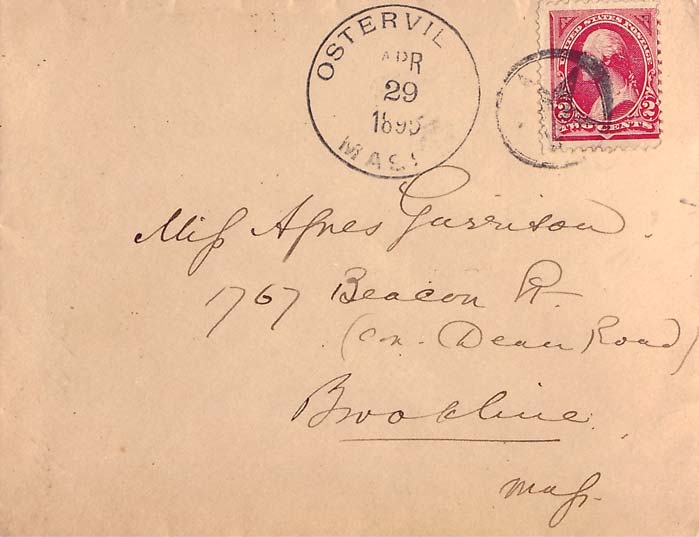 OSTERVIL
APR
29
1895
MASS
UNITED STATES POSTAGE
2 2
TWO CENTS
Miss Agnes Garrison.
1767 Beacon St.
(cor. Dean Road)
Brookline.
Mass.